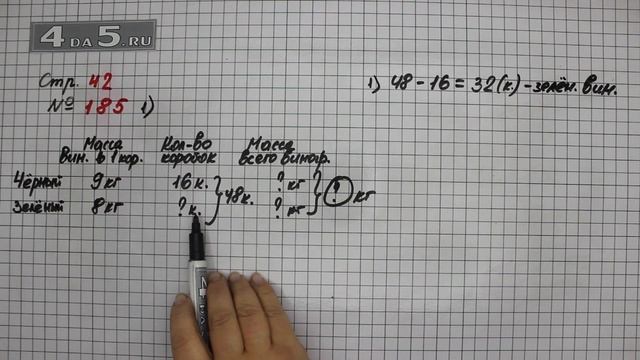 4DA5.RU
Стр. 42
№ 185 1)
1) 48 - 16 = 32 (к.) - зелён. вин.
Масса вин. в 1 кор. Кол-во коробок Масса всего виногр.
Чёрный 9 кг 16 к. ? кг
48 к. ? кг
Зелёный 8 кг ? к. ? кг